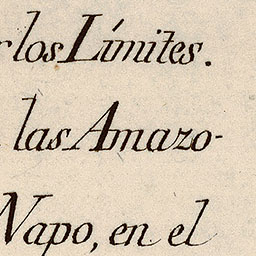 los Límites.
las Amazo-
Napo, en el